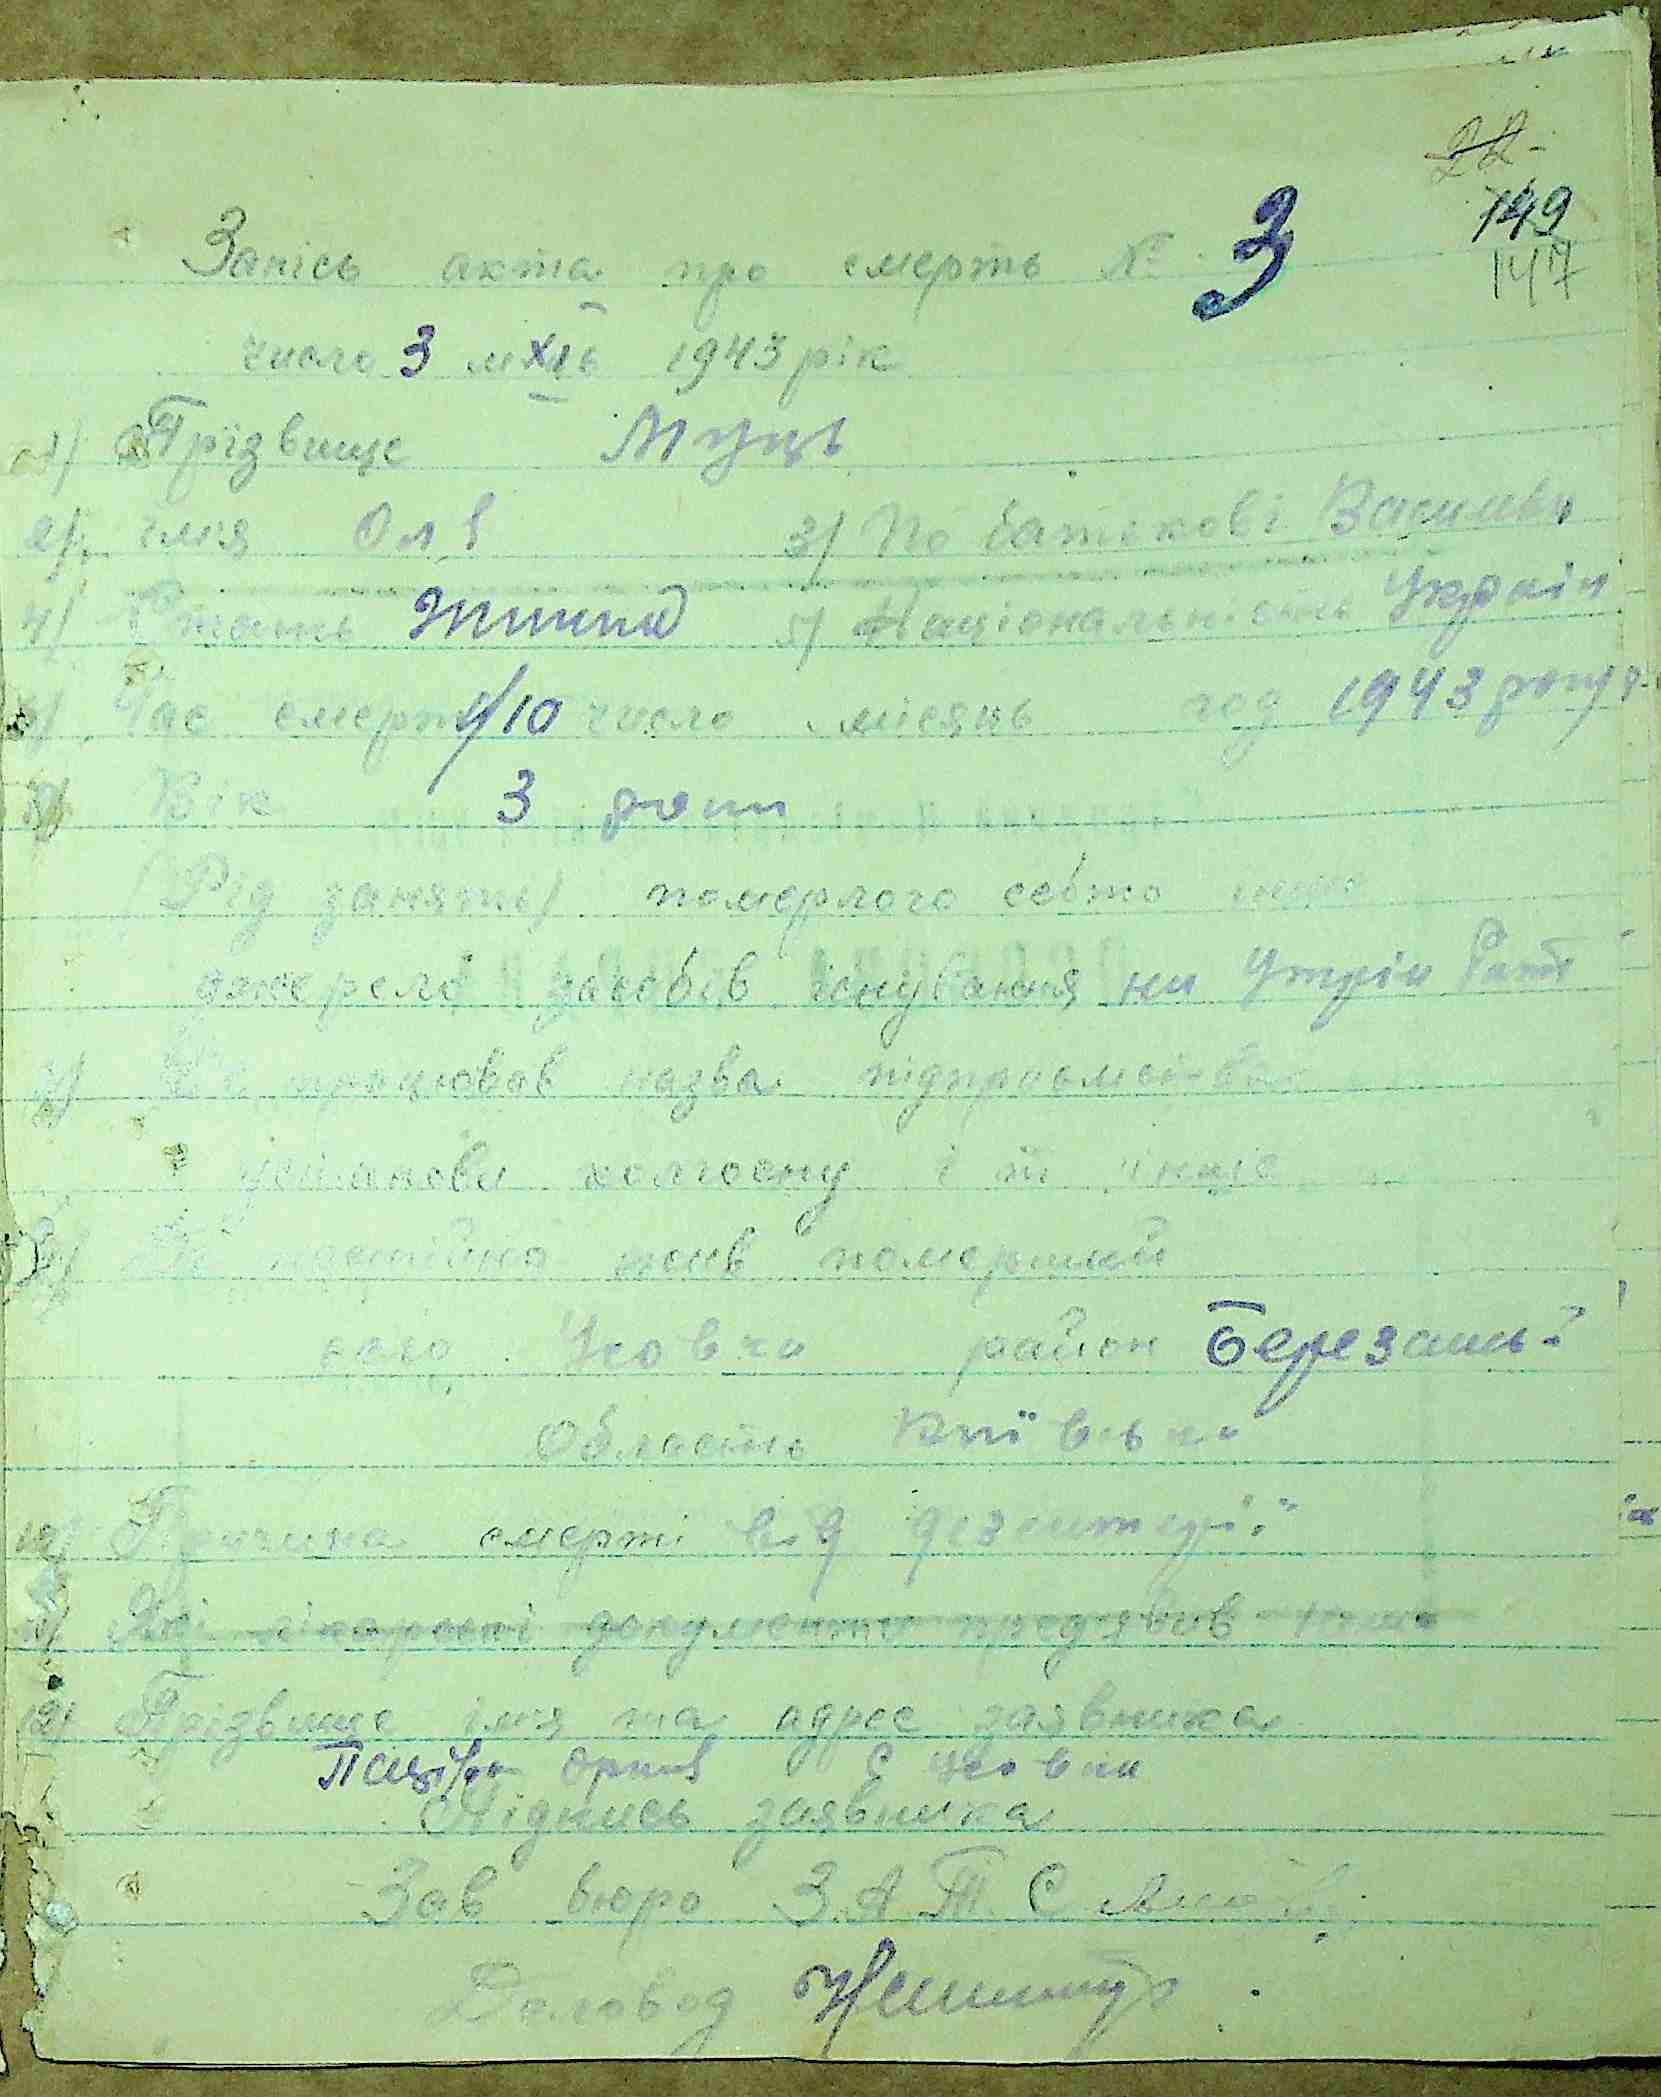 22
149
147
Запісь акта про смерть № 3
число 3 м XI ь 1943 рік
1) Прізвище Муць
2) імя Оля 3) По батькові Василівн
4) Стать Жіноча 5) Національність Україн
6) Час смерті 1/10 число місяць год 1943 року
Вік 3 роки
(Рід занять) померлого себто
джерело засобів існування на Утрім Бать
Де працював назва підприємства
установи колгоспу і т інше
Де постійно жив померший
село Усовка район Березань
Область Київська
10) Причина смерті від дезентерії
11) Які лікарські документи предявив
12) Прізвище імя та адрес заявника
с Усовка
Підпись заявника
Зав бюро З.А.Т.С
Діловод